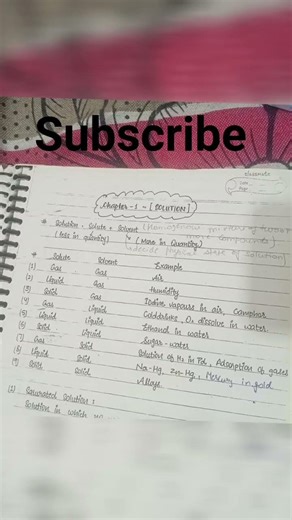 Subscribe
classmate
Date
Page
Chapter-1 - [SOLUTION]
* Solution = Solute + Solvent (Homogeneous mixture of two or more
(less in quantity) (More in Quantity)
decide physical state of solution)
* Solute Solvent Example
(1) Gas Gas Air
(2) Liquid Gas Humidity
(3) Solid Gas Iodine vapours in air, Camphor
(4) Gas Liquid Colddrinks, O2 dissolve in water
(5) Liquid Liquid Ethanol in water
(6) Solid Liquid Sugar-water
(7) Gas Solid Solution of H2 in Pd, Adsorption of gases
(8) Liquid Solid Na-Hg, Zn-Hg, Mercury in gold
(9) Solid Solid Alloys
(1) Saturated Solution :
Solution in which